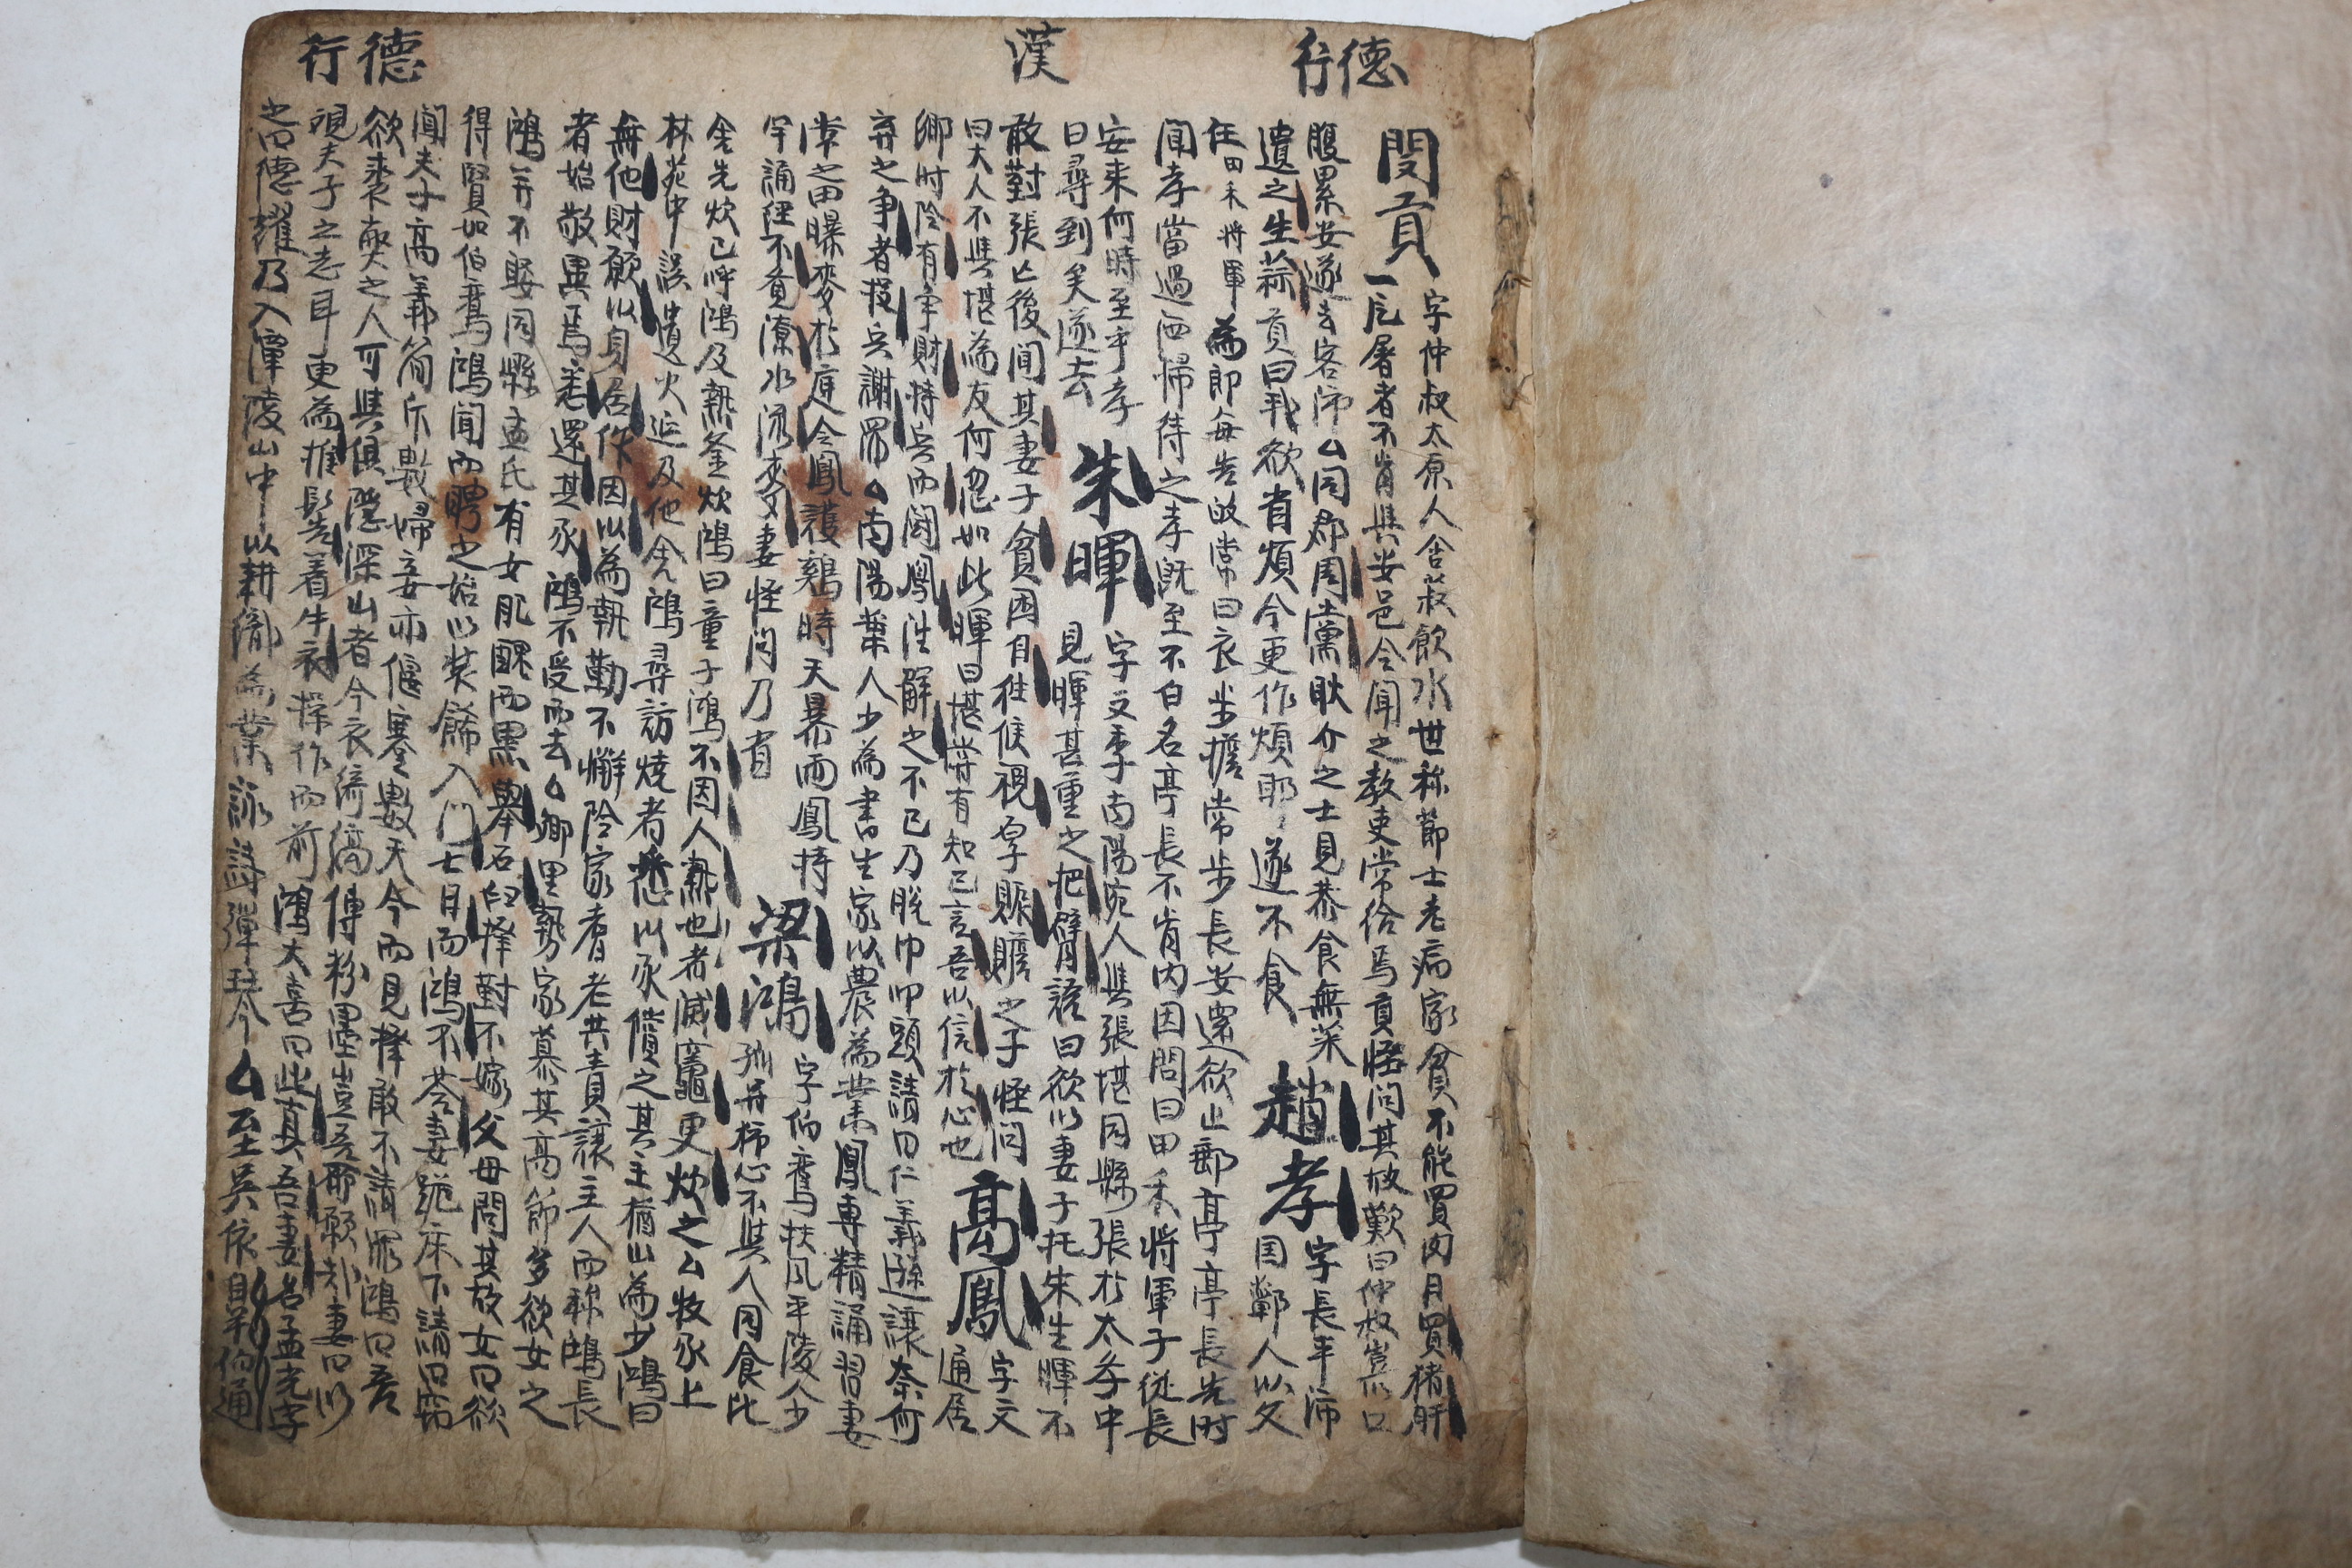 德行
漢
德行
閔貢 字仲叔太原人含菽飮水世称節士老病家貧不能買肉月買猪肝
一片屠者不肯與安邑令聞之教吏常給焉貢怪问其故歎曰仲叔豈以口
腹累安遂去客沛厶同郡周黨耿介之士見恭食無菜
遺之生蒜貢曰我欲省煩今更作煩耶遂不食 趙孝 字長平沛
国鄿人以父
任田禾將軍為郎每告故常曰衣步擔常步長安還欲止郵亭亭長先时
聞孝當過洒帰待之孝既至不白名亭長不肯内因問曰田禾將軍子從長
安来何時至乎孝
曰尋到矣遂去 朱暉 字文季南陽宛人與張堪同縣張於太学中
見暉甚重之把臂謂曰欲以妻子托朱生暉不
敢對張亡後闻其妻子貧困自徃候視厚賑贍之子怪问
曰大人不與堪為友何忽如此暉曰堪嘗有知己言吾以信於心也 高鳳 字文
通居
鄉时隣有争財持兵而鬪鳳往解之不已乃脫巾叩頭請曰仁義遜讓奈何
弃之争者投兵謝罪厶南陽葉人少為書生家以農為業鳳専精誦習妻
常之田曝麥於庭令鳳護鷄時天暴雨鳳持
竿誦経不覚潦水流麥妻怪问乃省 梁鴻 字伯鸞扶风平陵人少
孤 不與人同食比
舍先炊已呼鴻及熱釜炊鴻曰童子鴻不因人熱也者滅竈更炊之厶牧豕上
林苑中誤遺火延及他舍鴻尋訪燒者悉以豕償之其主猶以為少鴻曰
無他財願以身居作因以為執勤不懈隣家耆老共責讓主人而称鴻長
者始敬異焉悉還其豕鴻不受而去厶鄉里勢家慕其高節多欲女之
鴻并不娶同縣孟氏有女肌醜而黑舉石臼擇對不嫁父母問其故女曰欲
得賢如伯鸞鴻聞而聘之始以裝餙入门七日而鴻不荅妻跪床下請曰窃
聞夫子高義简斥數婦妾亦偃蹇數夫今而見擇敢不請罪鴻曰吾
欲裘褐之人可與俱隱深山者今衣綺縞傅粉墨豈吾所願哉妻曰以
視夫子之志耳更為椎髻着牛衣操作而前鴻大喜曰此真吾妻名孟光字
之曰德耀乃入潭陵山中以耕織為業詠詩彈琴厶至吳依皐伯通